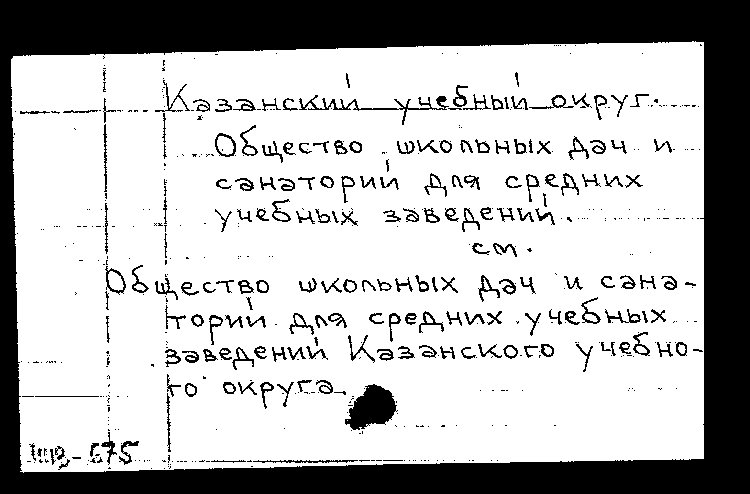 Казанский учебный округ.
Общество школьных дач и
санаторий для средних
учебных заведений.
см.
Общество школьных дач и сана-
торий для средних учебных
заведений Казанского учебно-
го округа.
575